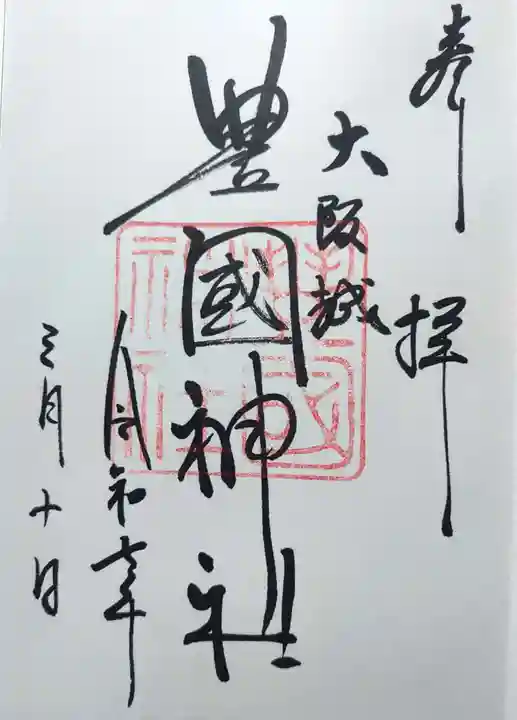 奉拝
大阪城
豊國神社
令和七年
三月十日
豊國神社